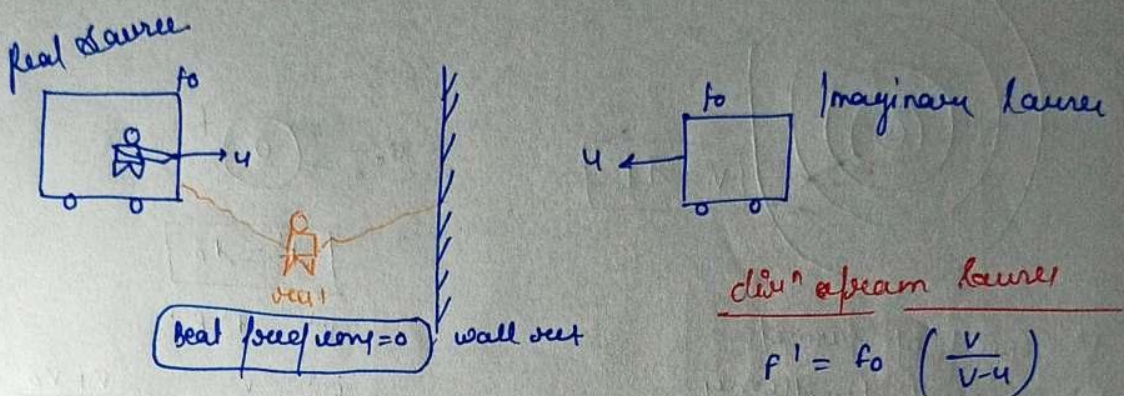 Real Source
fo
u
rest
Beat frequency=0
wall rest
fo
Imaginary Source
u
dirn from Source
f' = fo (v/v-u)